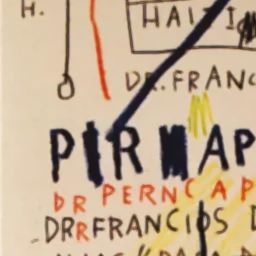 H.
HAITI
DR. FRANC
PIR AP
DR PERNC A P
DRRFRANCIOS D